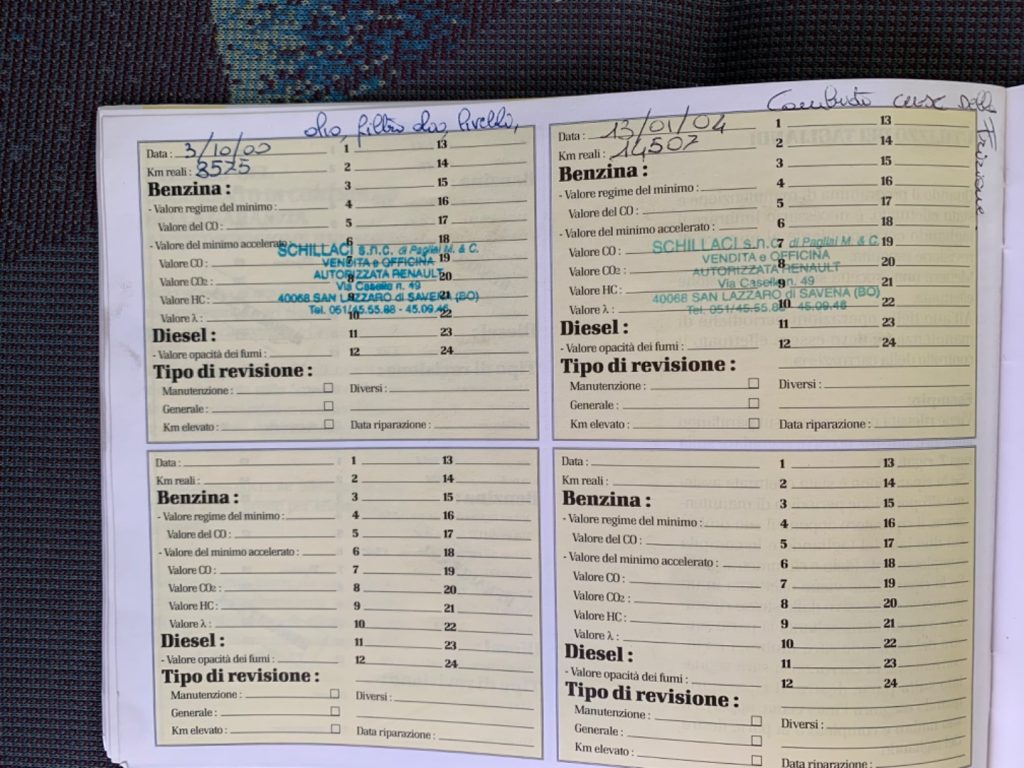 olio, filtro olio, livelli,
Data : 3/10/00 1 13
Km reali : 8575 2 14
Benzina : 3 15
- Valore regime del minimo : 4 16
Valore del CO : 5 17
- Valore del minimo accelerato : 6 18
Valore CO : 7 19
Valore CO2 : 8 20
Valore HC : 9 21
Valore λ : 10 22
Diesel : 11 23
- Valore opacità dei fumi : 12 24
SCHILLACI s.n.c. di Pagliai M. & C.
VENDITA e OFFICINA
AUTORIZZATA RENAULT
Via Caselle n. 49
40068 SAN LAZZARO di SAVENA (BO)
Tel. 051/45.55.88 - 45.09.48
Tipo di revisione :
Manutenzione : Diversi :
Generale :
Km elevato : Data riparazione :
della
Frizione
Data : 13/01/04 1 13
Km reali : 14507 2 14
Benzina : 3 15
- Valore regime del minimo : 4 16
Valore del CO : 5 17
- Valore del minimo accelerato : 6 18
Valore CO : 7 19
Valore CO2 : 8 20
Valore HC : 9 21
Valore λ : 10 22
Diesel : 11 23
- Valore opacità dei fumi : 12 24
SCHILLACI s.n.c. di Pagliai M. & C.
VENDITA e OFFICINA
AUTORIZZATA RENAULT
Via Caselle n. 49
40068 SAN LAZZARO di SAVENA (BO)
Tel. 051/45.55.88 - 45.09.48
Tipo di revisione :
Manutenzione : Diversi :
Generale :
Km elevato : Data riparazione :
Data : 1 13
Km reali : 2 14
Benzina : 3 15
- Valore regime del minimo : 4 16
Valore del CO : 5 17
- Valore del minimo accelerato : 6 18
Valore CO : 7 19
Valore CO2 : 8 20
Valore HC : 9 21
Valore λ : 10 22
Diesel : 11 23
- Valore opacità dei fumi : 12 24
Tipo di revisione :
Manutenzione : Diversi :
Generale :
Km elevato : Data riparazione :
Data : 1 13
Km reali : 2 14
Benzina : 3 15
- Valore regime del minimo : 4 16
Valore del CO : 5 17
- Valore del minimo accelerato : 6 18
Valore CO : 7 19
Valore CO2 : 8 20
Valore HC : 9 21
Valore λ : 10 22
Diesel : 11 23
- Valore opacità dei fumi : 12 24
Tipo di revisione :
Manutenzione : Diversi :
Generale :
Km elevato : Data riparazione :